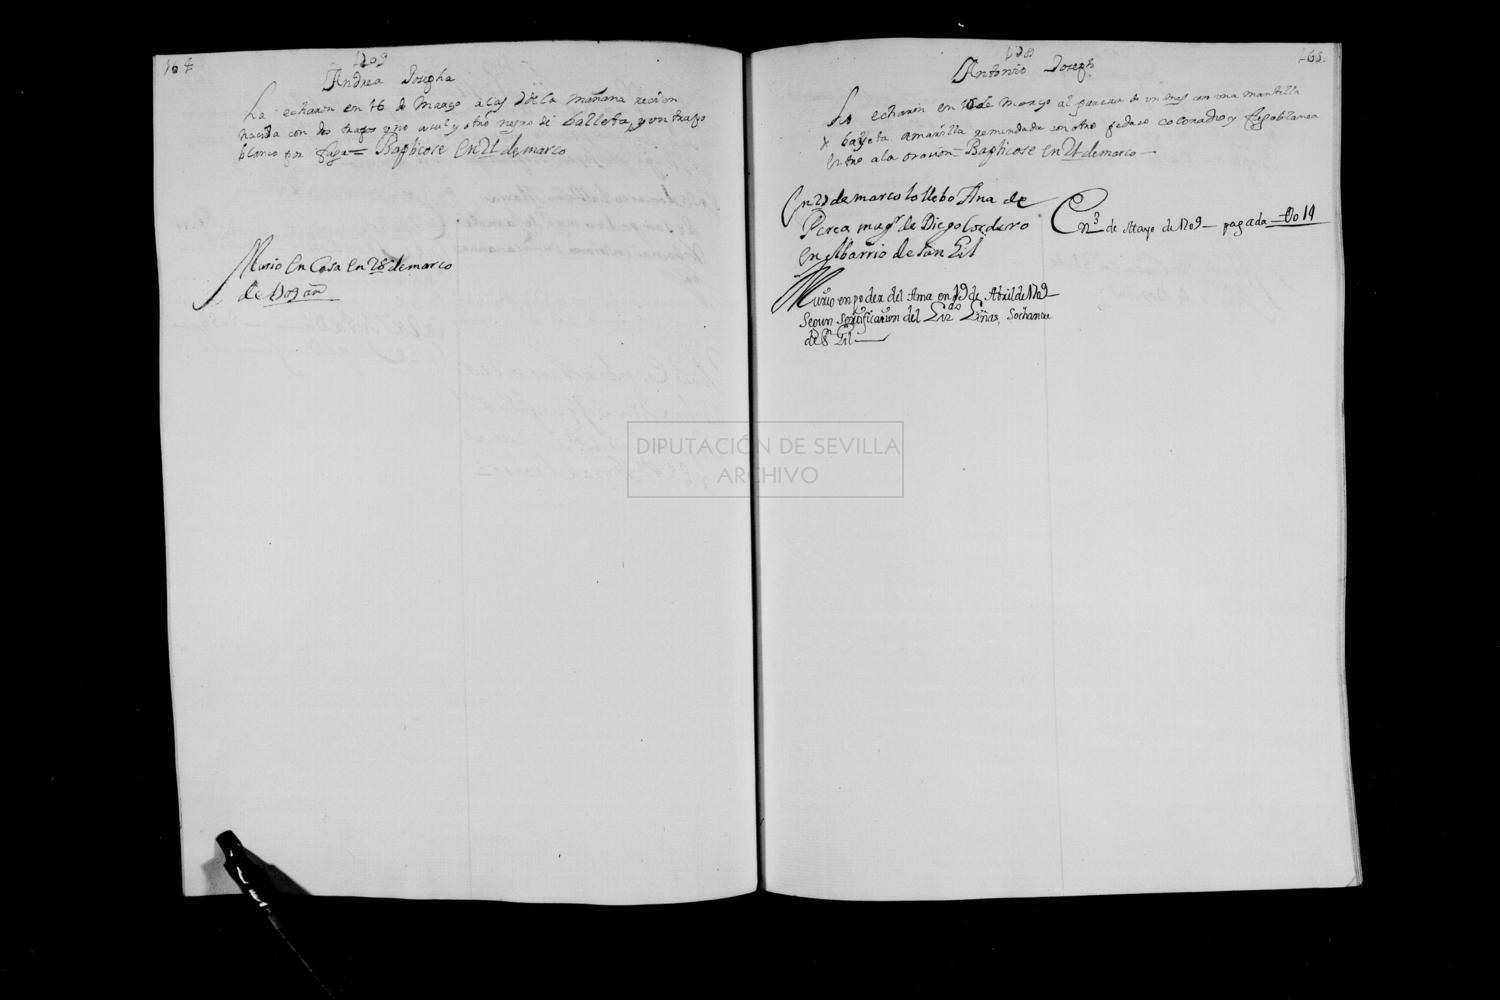 164
1709
Andrea Josepha
La echaron en 16 de Março a las de la mañana recien
nacida con dos trapos uno azul y otro negro de balleta, y un trapo
blanco por faxa = Baptiçose En 21 de março
Murio En Casa En 28 de março
de 1709 añ
165
Antonio Joseph
Lo echaron en 16 de Março al pareser de un mes con una mantilla
x bayeta amarilla remendada con otro pedaço colorado y faxa blanca
Entre a la oracion = Baptiçose En 21 de março
En 21 de março lo llebo Ana de
Perea mug.r de Diego Cordero
en el barrio de san Gil
Murio en poder del Ama en 19 de Abril de 1709
Segun Sertificasion del Liz.do Liñas, Sochantre
de S.n Gil
En 3 de Mayo de 1709 — pagada — Do 19
DIPUTACIÓN DE SEVILLA
ARCHIVO